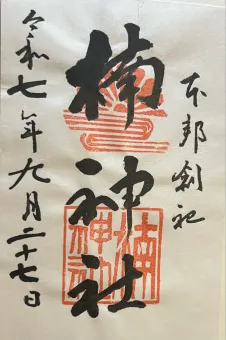 本邦創祀
楠神社
令和七年九月二十七日
楠神社